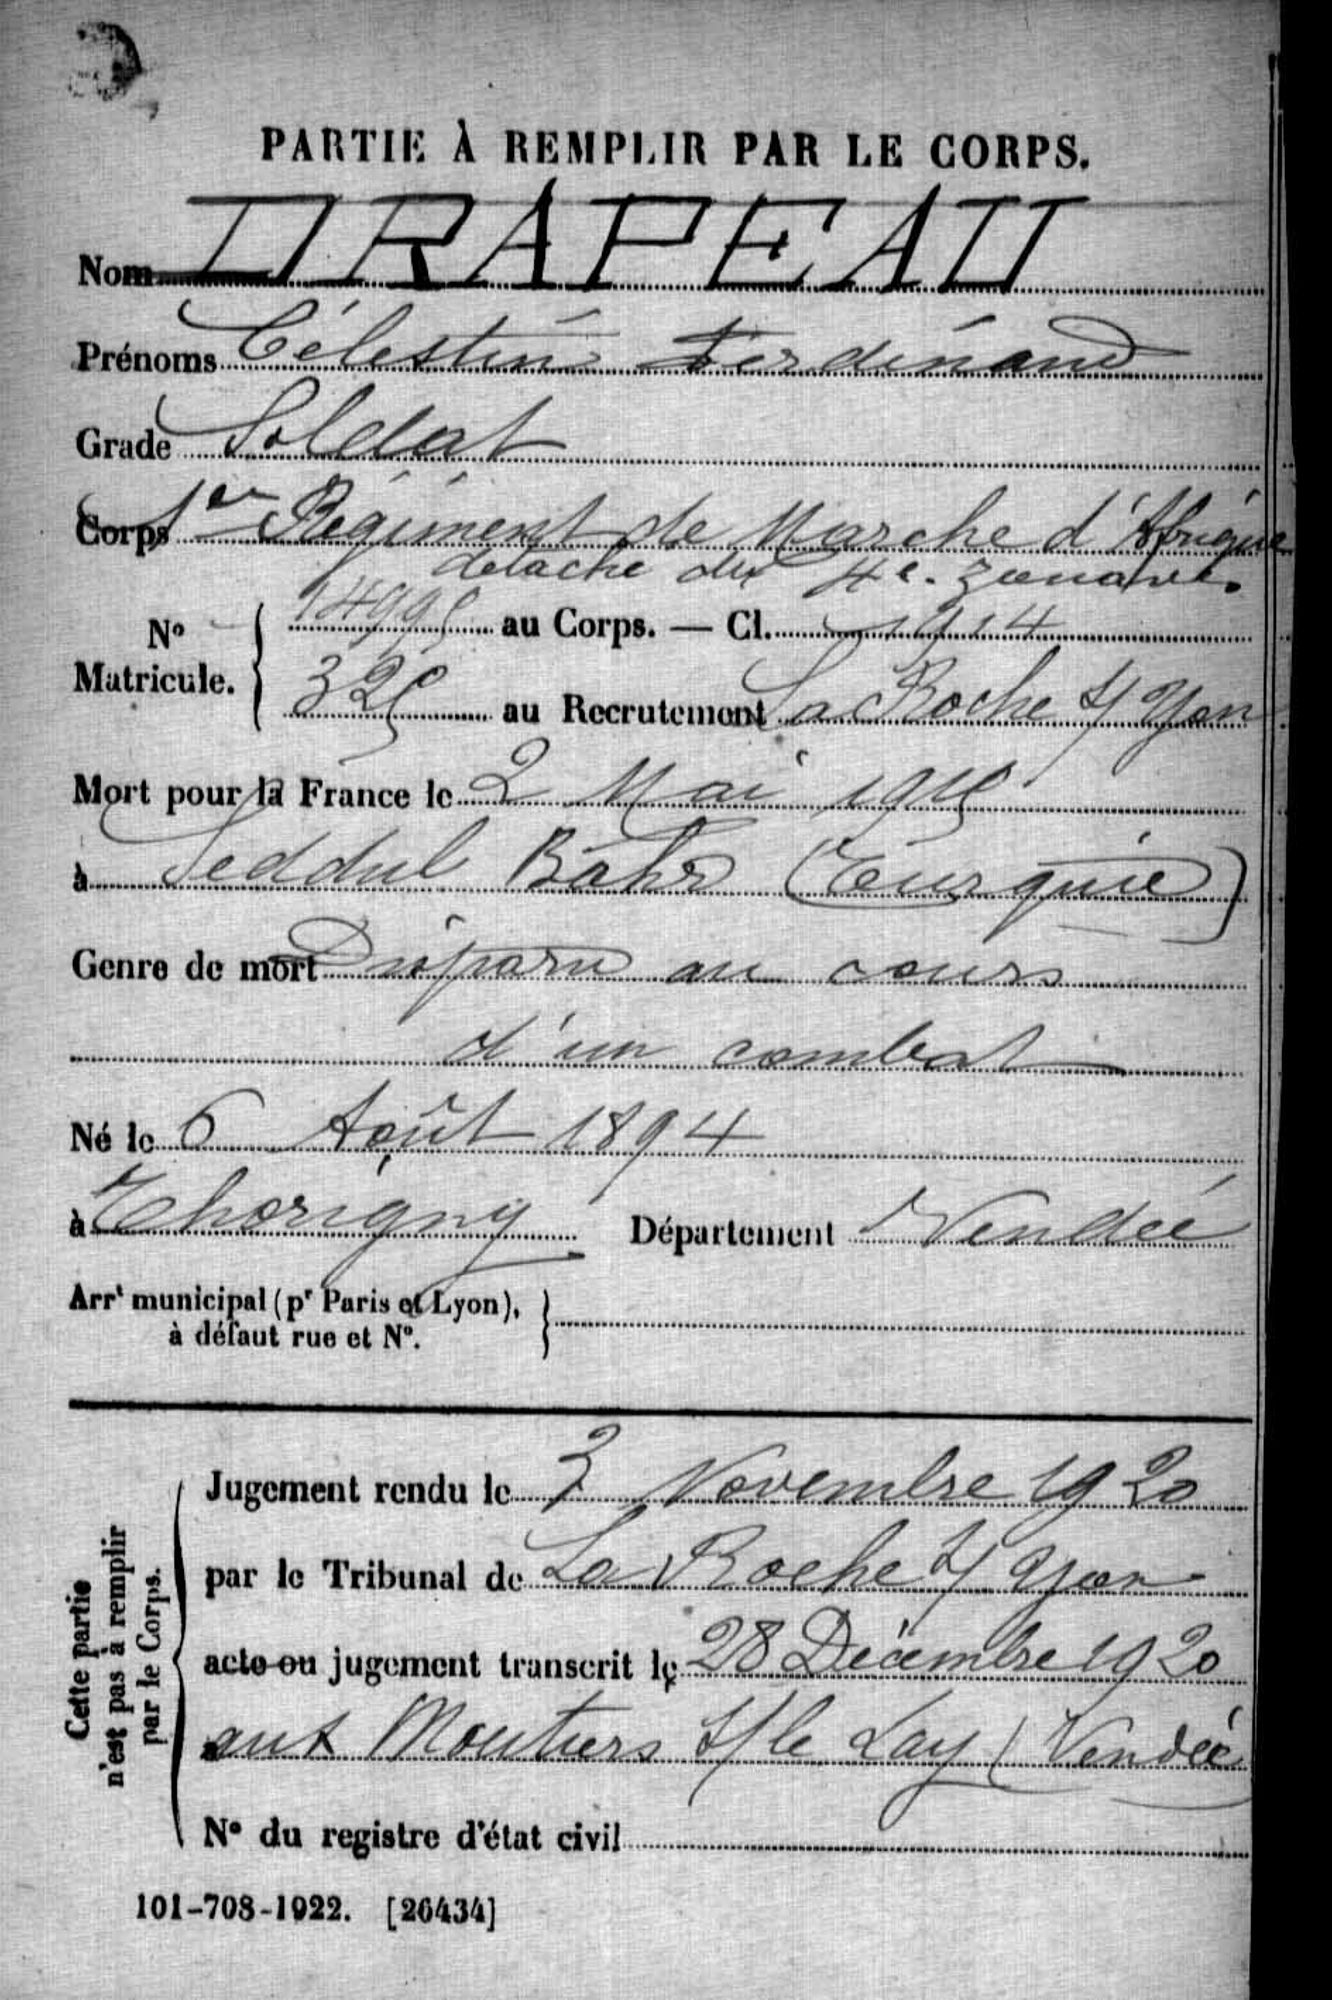 PARTIE À REMPLIR PAR LE CORPS.
Nom DRAPEAU
Prénoms Célestin Ferdinand
Grade Soldat
Corps 1er Régiment de Marche d'Afrique
détaché du 4e. zouaves.
No Matricule. { 14995 au Corps. — Cl. 1914
325 au Recrutement La Roche s/ Yon
Mort pour la France le 2 Mai 1915
à Seddul Bahr (Turquie)
Genre de mort Disparu au cours
d'un combat
Né le 6 Août 1894
à Thorigny Département Vendée
Arrt municipal (pr Paris et Lyon), }
à défaut rue et No.
Cette partie
n'est pas à remplir
par le Corps.
Jugement rendu le 3 Novembre 1920
par le Tribunal de La Roche s/ Yon
acte ou jugement transcrit le 28 Décembre 1920
aux Moutiers s/ le Lay (Vendée
No du registre d'état civil
101-708-1922. [26434]